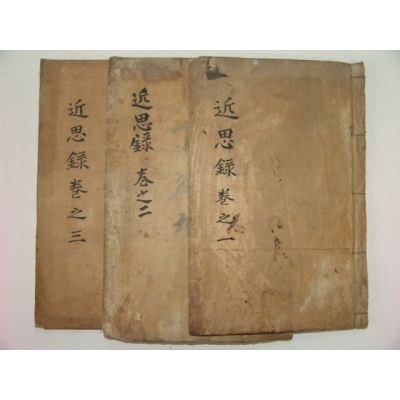 近思錄 卷之一
近思錄 卷之二
近思錄 卷之三